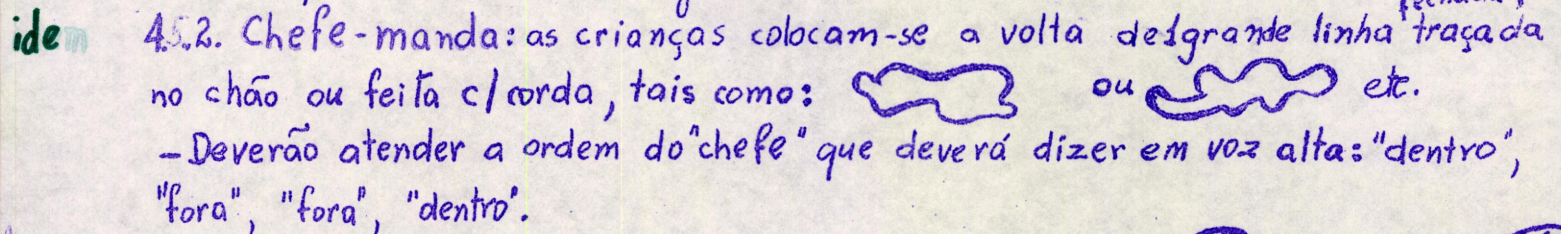 fechada,
idem 4.5.2. Chefe-manda: as crianças colocam-se a volta de 1 grande linha traçada
no chão ou feita c/ corda, tais como: ou etc.
-Deverão atender a ordem do "chefe" que deverá dizer em voz alta: "dentro",
"fora", "fora", "dentro".